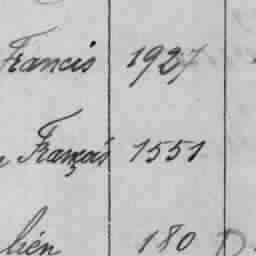 Francis 1927
François 1551
lién 180